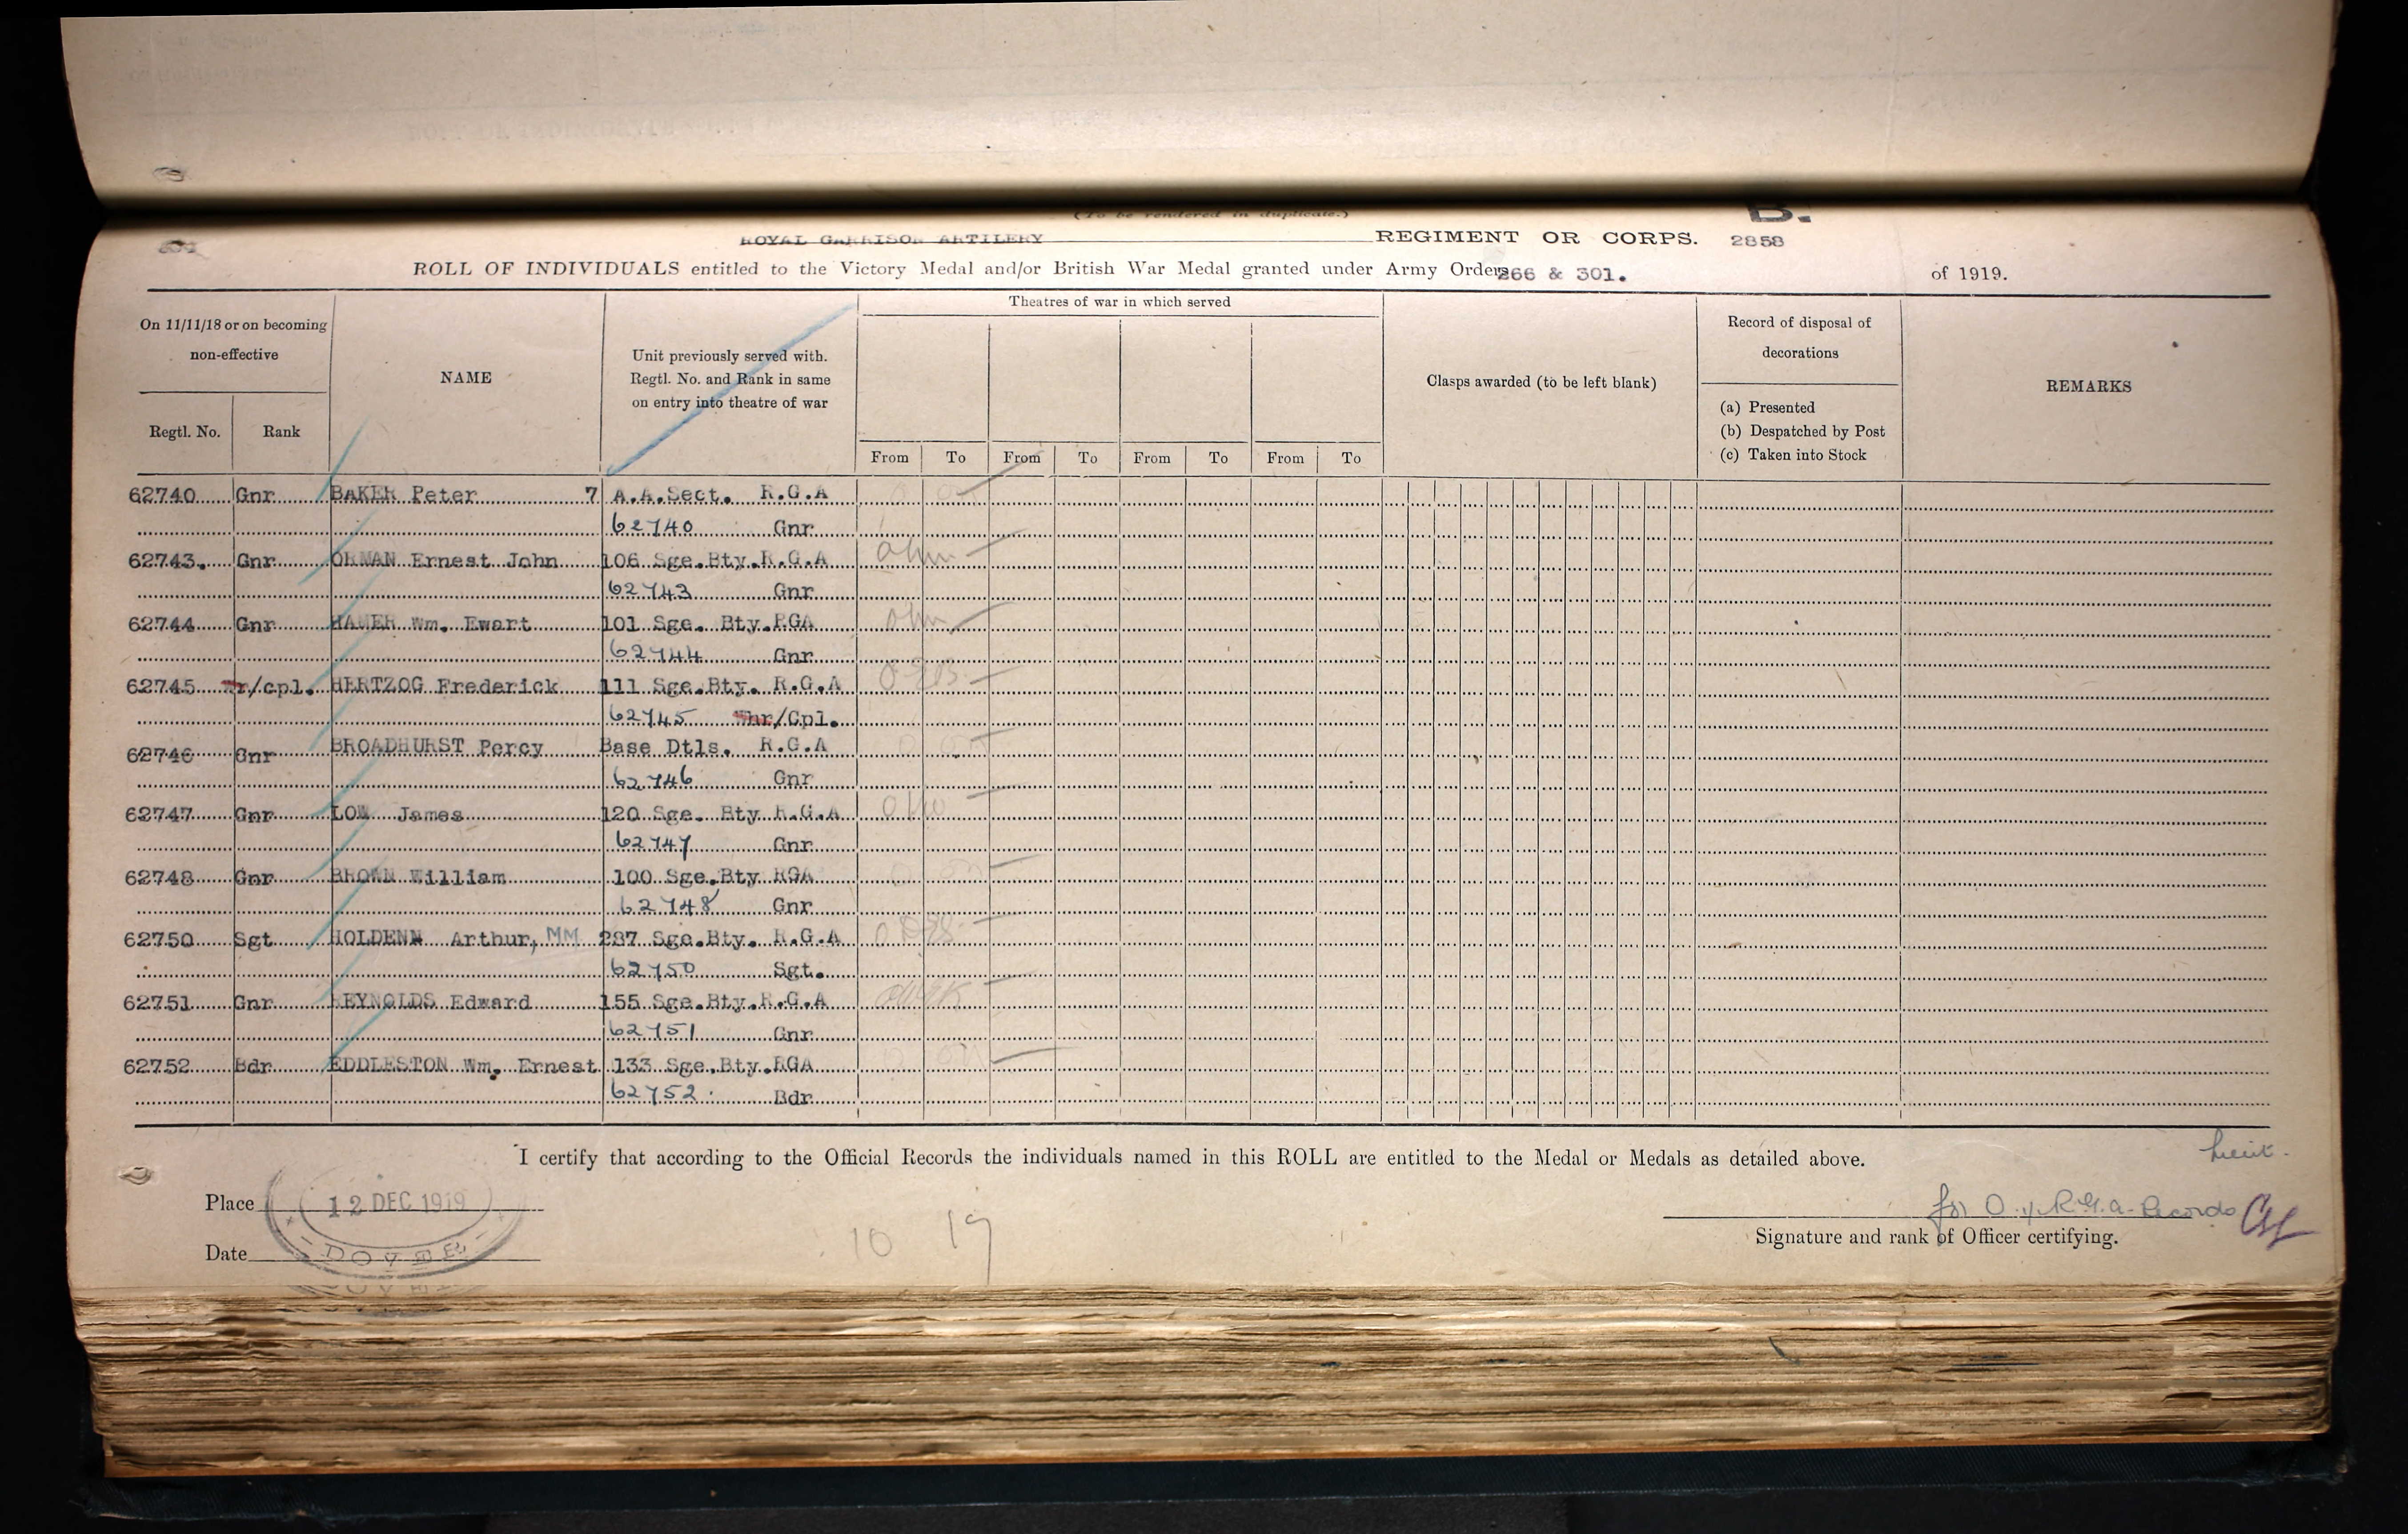 (To be rendered in duplicate.)
B.
ROYAL GARRISON ARTILERY REGIMENT OR CORPS. 2858
ROLL OF INDIVIDUALS entitled to the Victory Medal and/or British War Medal granted under Army Orders 266 & 301. of 1919.
On 11/11/18 or on becoming non-effective
Regtl. No. Rank
NAME
Unit previously served with. Regtl. No. and Rank in same on entry into theatre of war
Theatres of war in which served
From To From To From To From To
Clasps awarded (to be left blank)
Record of disposal of decorations
(a) Presented
(b) Despatched by Post
(c) Taken into Stock
REMARKS
62740 Gnr BAKER Peter 7 A.A.Sect. R.G.A
62740 Gnr
62743. Gnr ORMAN Ernest John 106 Sge.Bty.R.G.A
62743 Gnr
62744 Gnr HAMER Wm. Ewart 101 Sge. Bty.RGA
62744 Gnr
62745 r/cpl. HERTZOG Frederick 111 Sge.Bty. R.G.A
62745 /Cpl.
62746 Gnr BROADHURST Percy Base Dtls. R.G.A
62746 Gnr
62747 Gnr LOW James 120 Sge. Bty R.G.A
62747 Gnr
62748 Gnr BROWN William 100 Sge.Bty RGA
62748 Gnr
62750 Sgt HOLDENN Arthur, MM 287 Sge.Bty. R.G.A
62750 Sgt.
62751 Gnr REYNOLDS Edward 155 Sge.Bty.R.G.A
62751 Gnr
62752 Bdr EDDLESTON Wm. Ernest 133 Sge.Bty.RGA
62752. Bdr
I certify that according to the Official Records the individuals named in this ROLL are entitled to the Medal or Medals as detailed above.
Lieut.
Place 12 DEC 1919
for O. i/c R.G.A. Records
Date DOVER
10 19
Signature and rank of Officer certifying.